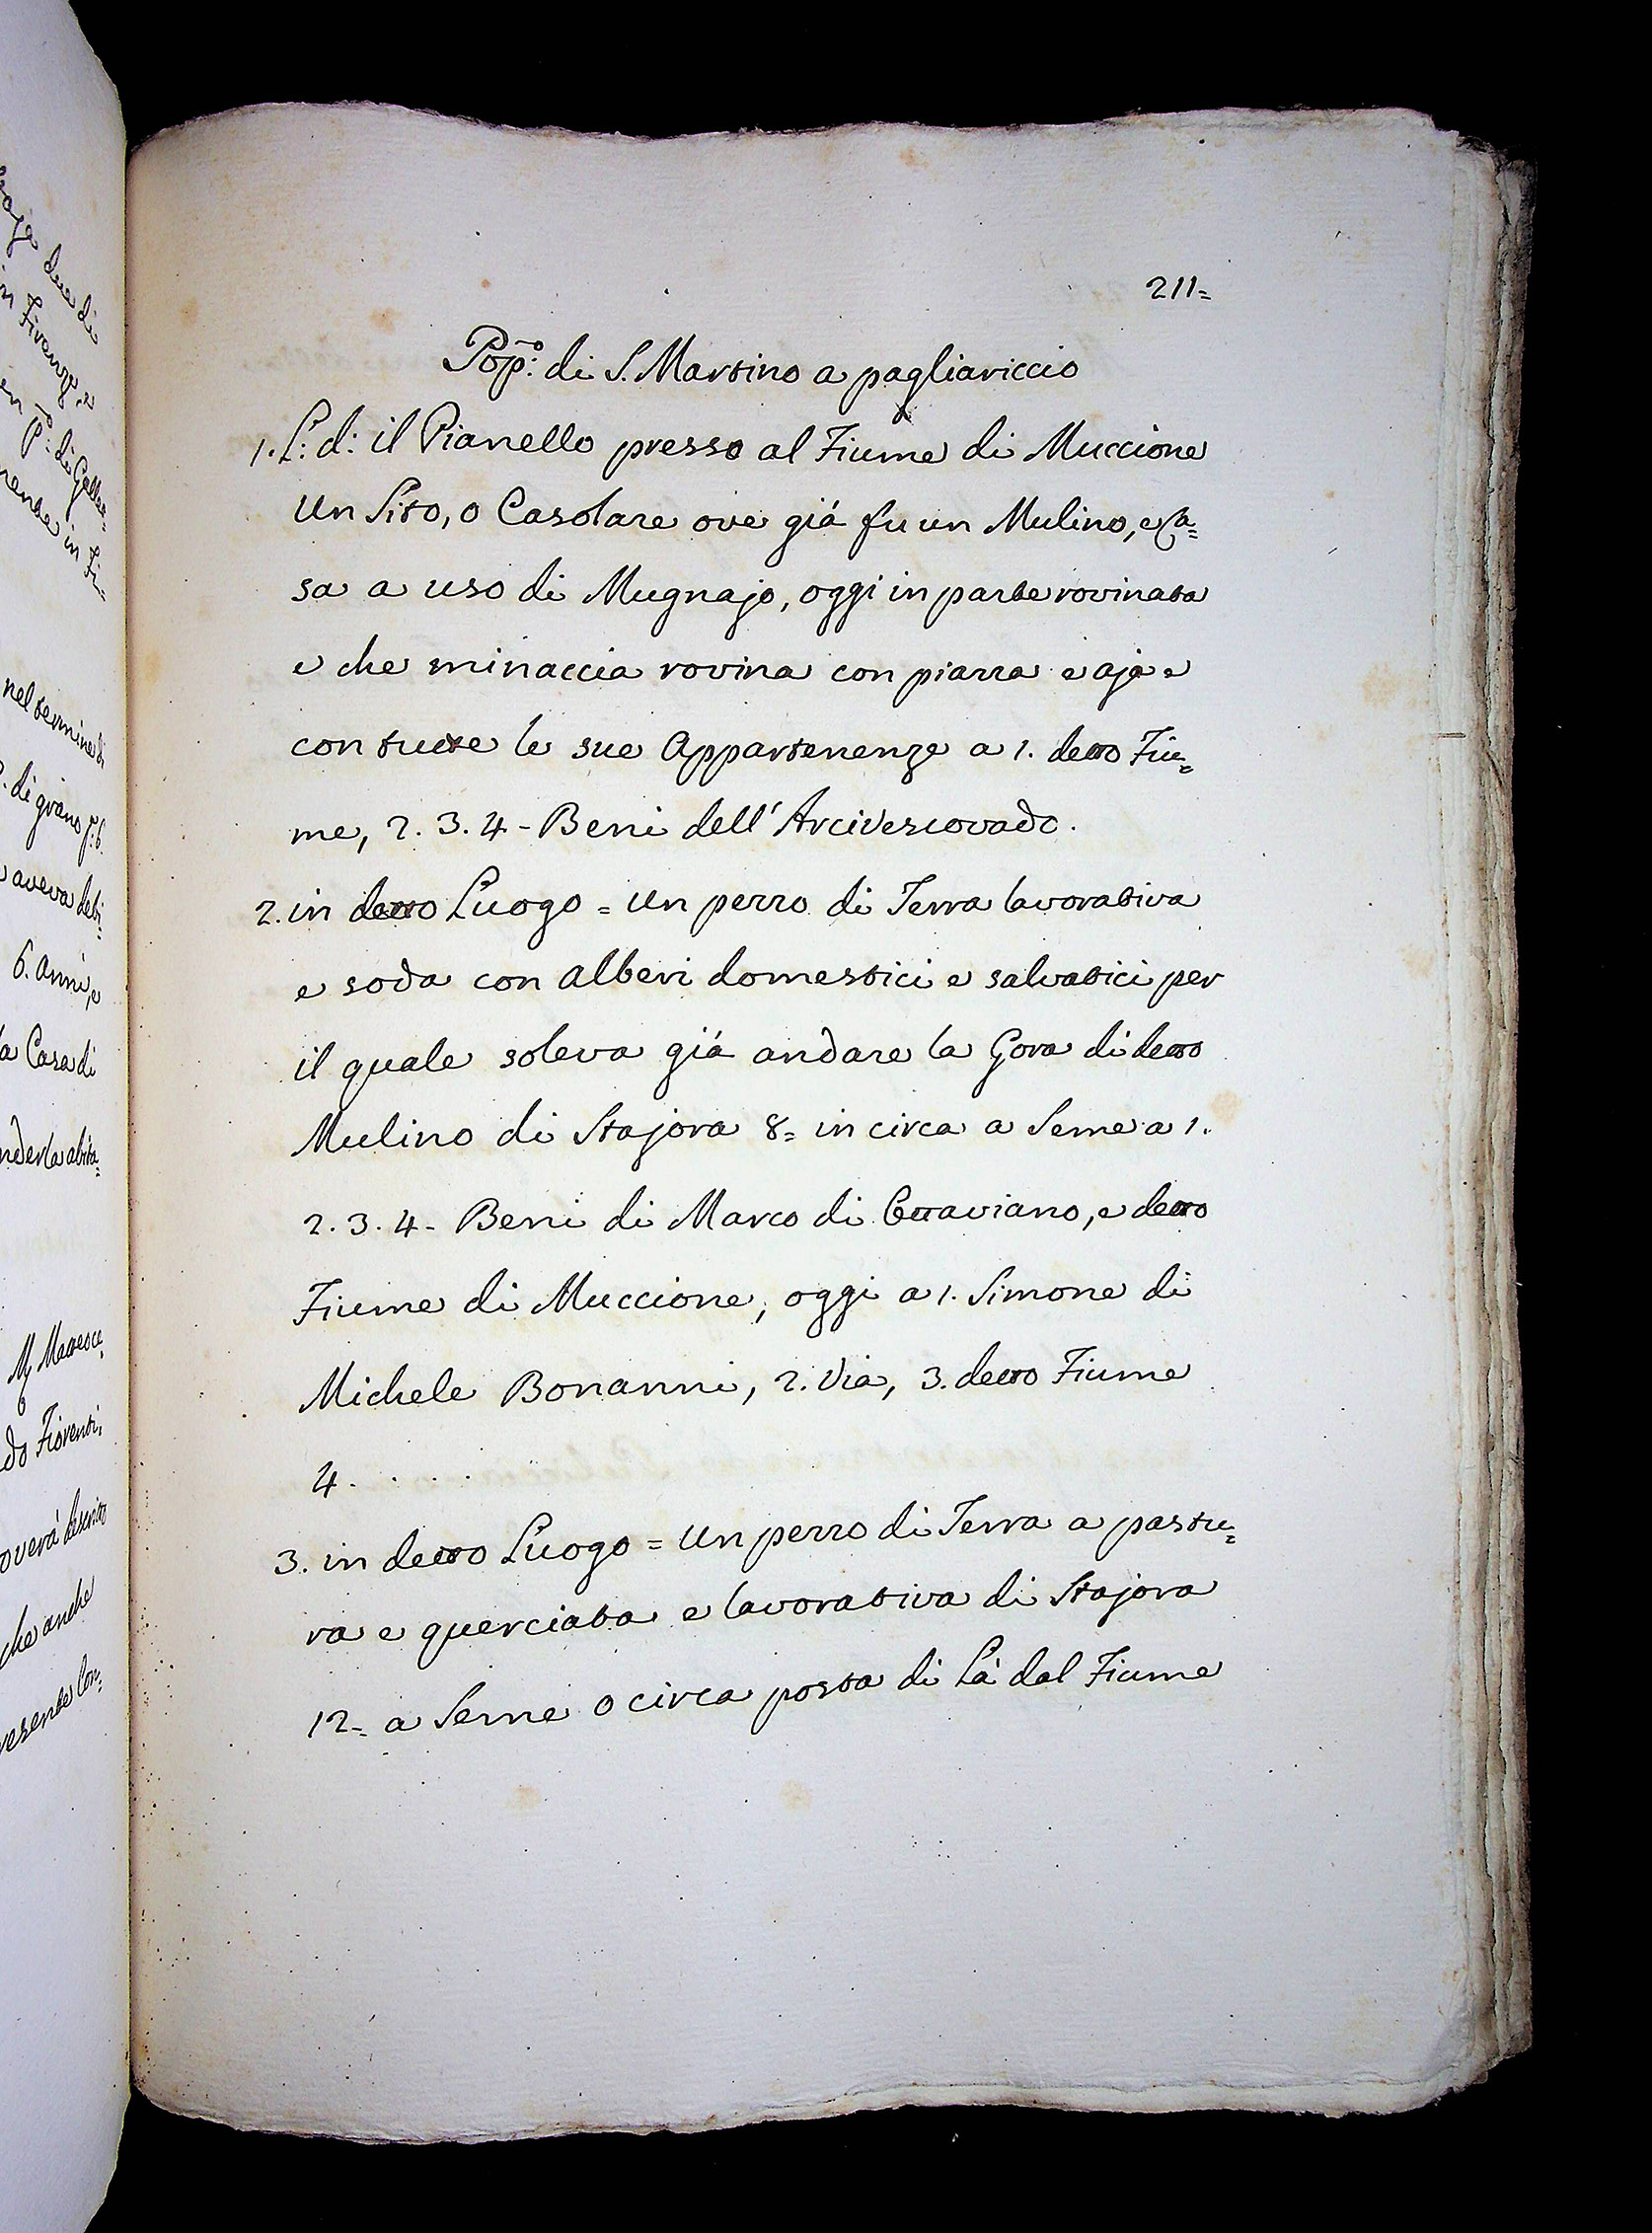 211=
Pop.º: di S. Martino a pagliariccio
1. L: d: il Pianello presso al Fiume di Muccione
un Sito, o Casolare ove giá fu un Mulino, e Ca=
sa a uso di Mugnajo, oggi in parte rovinata
e che minaccia rovina con piazza e aja e
con tutte le sue Appartenenze a 1. detto Fiu=
me, 2. 3. 4 - Beni dell' Arcivescovado.
2. in detto Luogo = un pezzo di Terra lavorativa
e soda con alberi domestici e salvatici per
il quale soleva giá andare la Gora di detto
Mulino di Stajora 8= in circa a Seme a 1.
2. 3. 4 - Beni di Marco di Ottaviano, e detto
Fiume di Muccione, oggi a 1. Simone di
Michele Bonanni, 2. Via, 3. detto Fiume
4. . . . .
3. in detto Luogo = un pezzo di Terra a pastu=
ra e querciata e lavorativa di Stajora
12= a Seme o circa posta di Là dal Fiume
nel termine di
. di grano
aveva debi=
6. anni, e
a Casa di
che anche